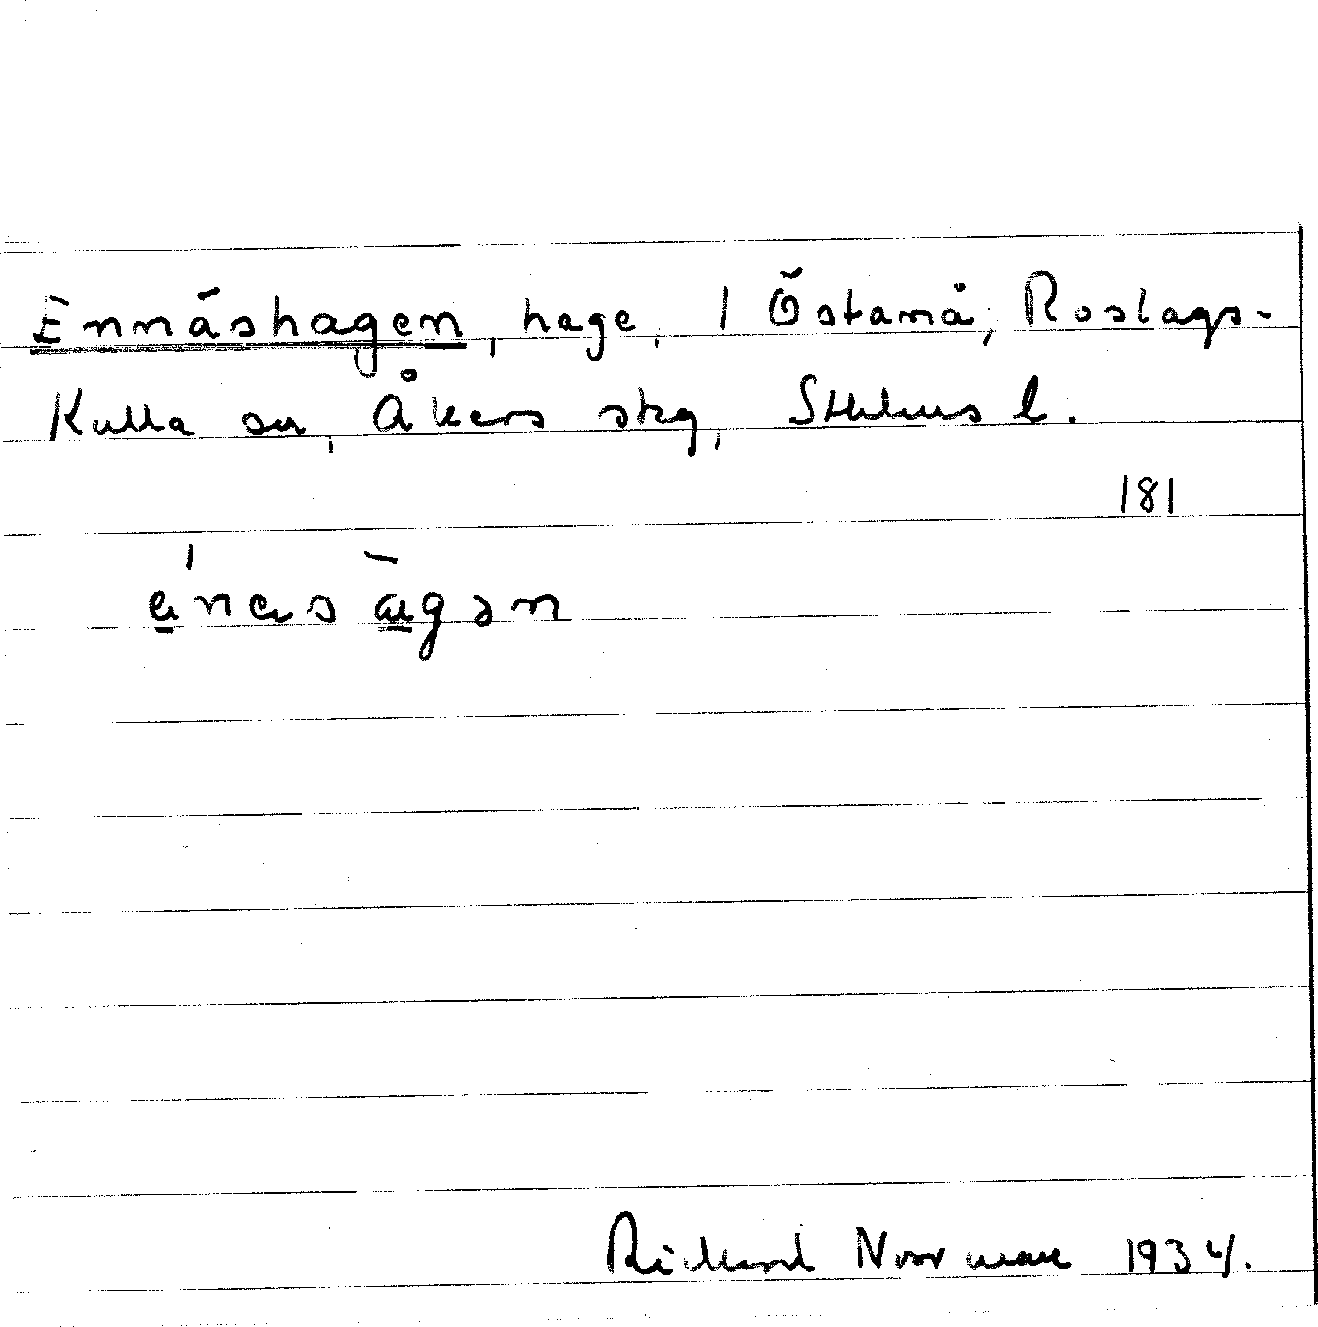 Ennäshagen, hage, i Östanå, Roslags-
Kulla sn, Åkers skg, Sthlms l.
181
Rickard Norrman 1934.